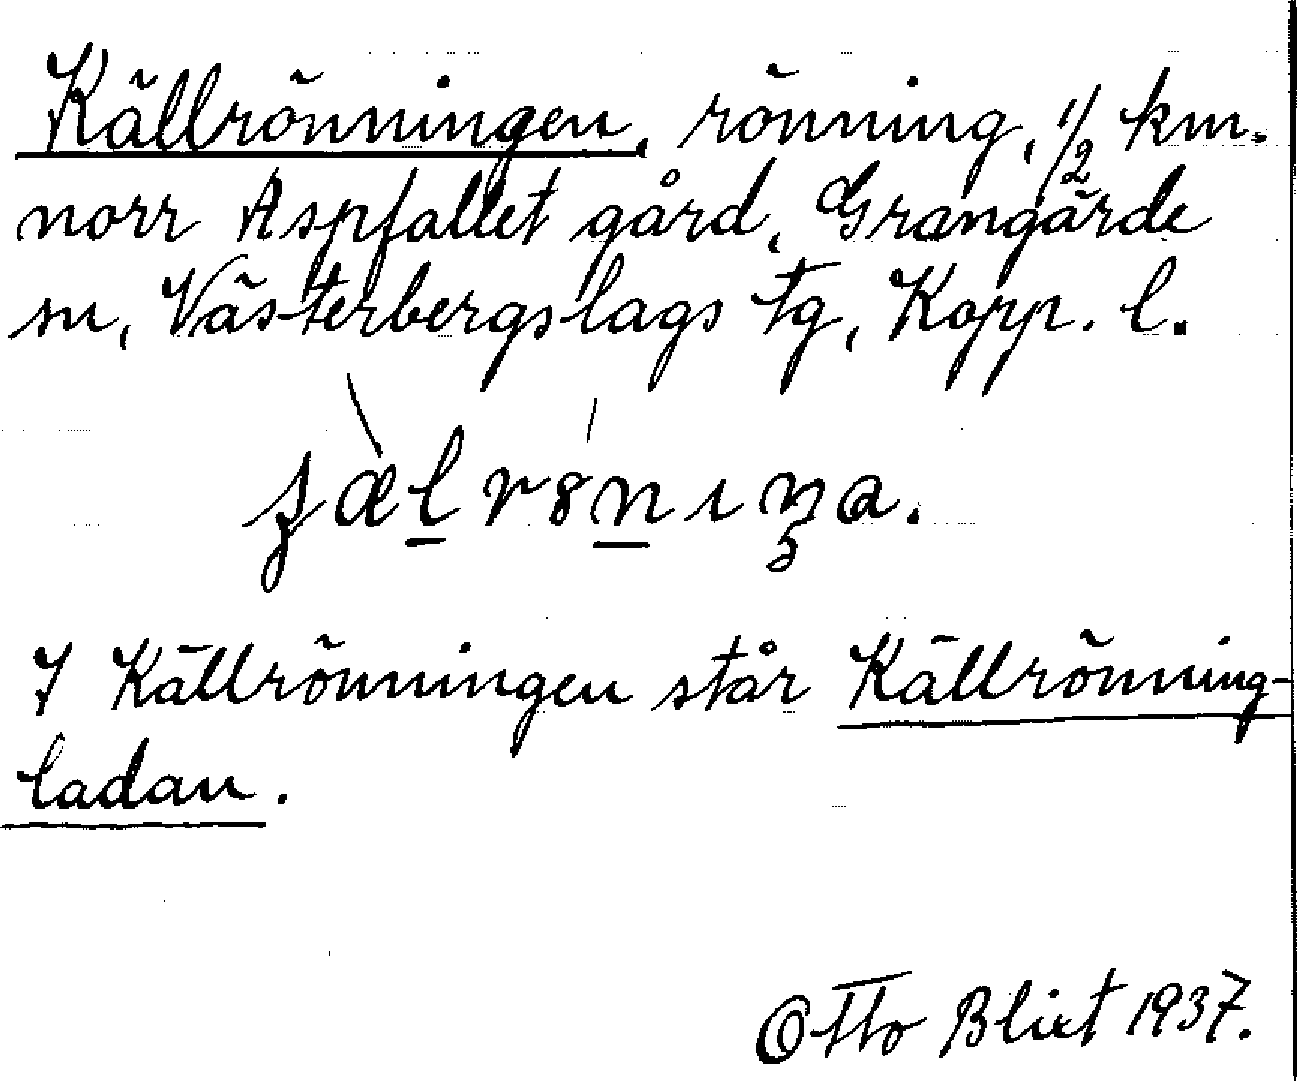 Källrönningen, rönning, 1/2 km.
norr Aspfallet gård, Grangärde
sn, Västerbergslags tg, Kopp. l.
I Källrönningen står Källrönning-
ladan.
Otto Blixt 1937.